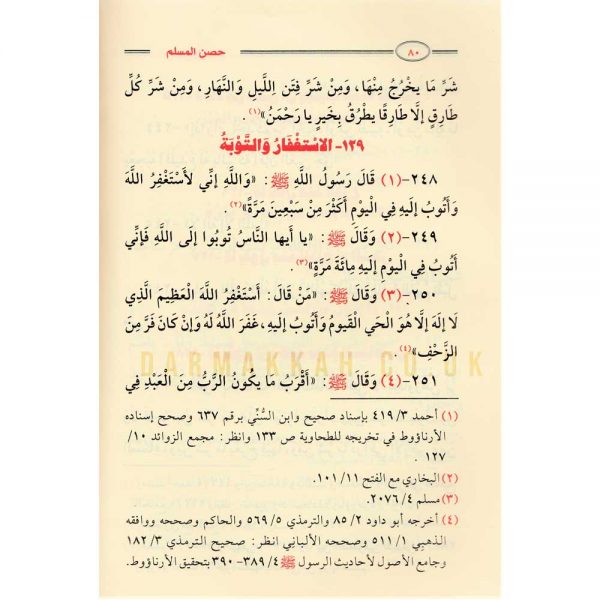 ٨٠ حصن المسلم
شَرِّ مَا يَخْرُجُ مِنْهَا، وَمِنْ شَرِّ فِتَنِ اللَّيلِ وَالنَّهَارِ، وَمِنْ شَرِّ كُلِّ
طَارِقٍ إلَّا طَارِقًا يطْرُقُ بِخَيرٍ يا رَحْمَنُ»(١).
١٢٩- الاسْتغْفَارُ وَالتَّوْبَةُ
٢٤٨-(١) قَالَ رَسُولُ اللَّهِ ﷺ: «وَاللَّهِ إنِّي لأَسْتَغْفِرُ اللَّهَ
وَأَتُوبُ إلَيهِ فِي الْيَوْمِ أَكْثَرَ مِنْ سَبْعِينَ مَرَّةً»(٢).
٢٤٩-(٢) وَقَالَ ﷺ: «يا أَيها النَّاسُ تُوبُوا إلَى اللَّهِ فَإنِّي
أَتُوبُ فِي الْيَوْمِ إلَيهِ مِائَةَ مَرَّةٍ»(٣).
٢٥٠-(٣) وَقَالَ ﷺ: «مَنْ قَالَ: أَسْتَغْفِرُ اللَّهَ الْعَظِيمَ الَّذِي
لَا إلَهَ إلَّا هُوَ الْحَي الْقَيومُ وَأَتُوبُ إلَيهِ، غَفَرَ اللَّهُ لَهُ وَإنْ كَانَ فَرَّ مِنَ
الزَّحْفِ»(٤).
DARMAKKAH.CO.UK
٢٥١-(٤) وَقَالَ ﷺ: «أَقْرَبُ مَا يَكُونُ الرَّبُّ مِنَ الْعَبْدِ فِي
(١) أحمد ٣/ ٤١٩ بإسناد صحيح وابن السُّنِّي برقم ٦٣٧ وصحح إسناده
الأرناؤوط في تخريجه للطحاوية ص ١٣٣ وانظر: مجمع الزوائد ١٠/
١٢٧ .
(٢) البخاري مع الفتح ١١/ ١٠١.
(٣) مسلم ٤/ ٢٠٧٦.
(٤) أخرجه أبو داود ٢/ ٨٥ والترمذي ٥/ ٥٦٩ والحاكم وصححه ووافقه
الذهبِي ١/ ٥١١ وصححه الألباني انظر: صحيح الترمذي ٣/ ١٨٢
وجامع الأصول لأحاديث الرسول ﷺ ٤/ ٣٨٩- ٣٩٠ بتحقيق الأرناؤوط.